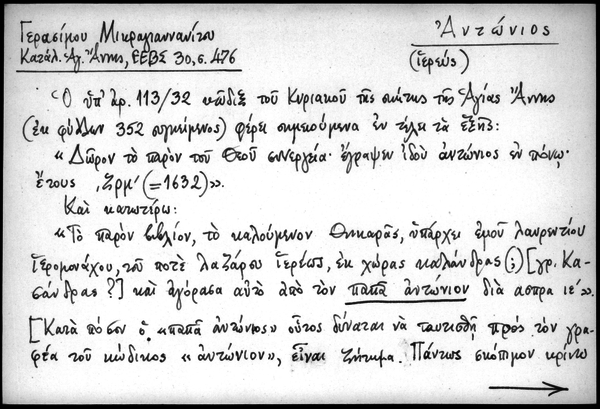 Γερασίμου Μικραγιαννανίτου
Κατάλ. Ἁγ. Ἄννης, ΕΕΒΣ 30, σ. 476
Ἀντώνιος
(ἱερεύς)
Ὁ ὑπ' ἀρ. 113/32 κῶδιξ τοῦ Κυριακοῦ τῆς σκήτης τῆς Ἁγίας Ἄννης
(ἐκ φύλλων 352 συγκείμενος) φέρει σημειούμενα ἐν τέλει τὰ ἑξῆς:
« Δῶρον τὸ παρὸν τοῦ Θεοῦ συνεργεία· ἔγραψεν ἰδοὺ ἀντώνιος ἐν πόνῳ·
ἔτους ͵ζρμ' (=1632)».
Καὶ κατωτέρω:
«Τὸ παρὸν βιβλίον, τὸ καλούμενον Θηκαρᾶς, ὑπάρχει ἐμοῦ λαυρεντίου
ἱερομονάχου, τοῦ ποτὲ λαζάρου ἱερέως, ἐκ χώρας καλάνδρας (;) [γρ. Κα-
σάνδρας ?] καὶ ἀγόρασα αὐτὸ ἀπὸ τὸν παπᾶ ἀντώνιον διὰ ἄσπρα ιε'».
[Κατὰ πόσον ὁ «παπᾶ ἀντώνιος» οὗτος δύναται νὰ ταυτισθῇ πρὸς τὸν γρα-
φέα τοῦ κώδικος «ἀντώνιον», εἶναι ζήτημα. Πάντως σκόπιμον κρίνω